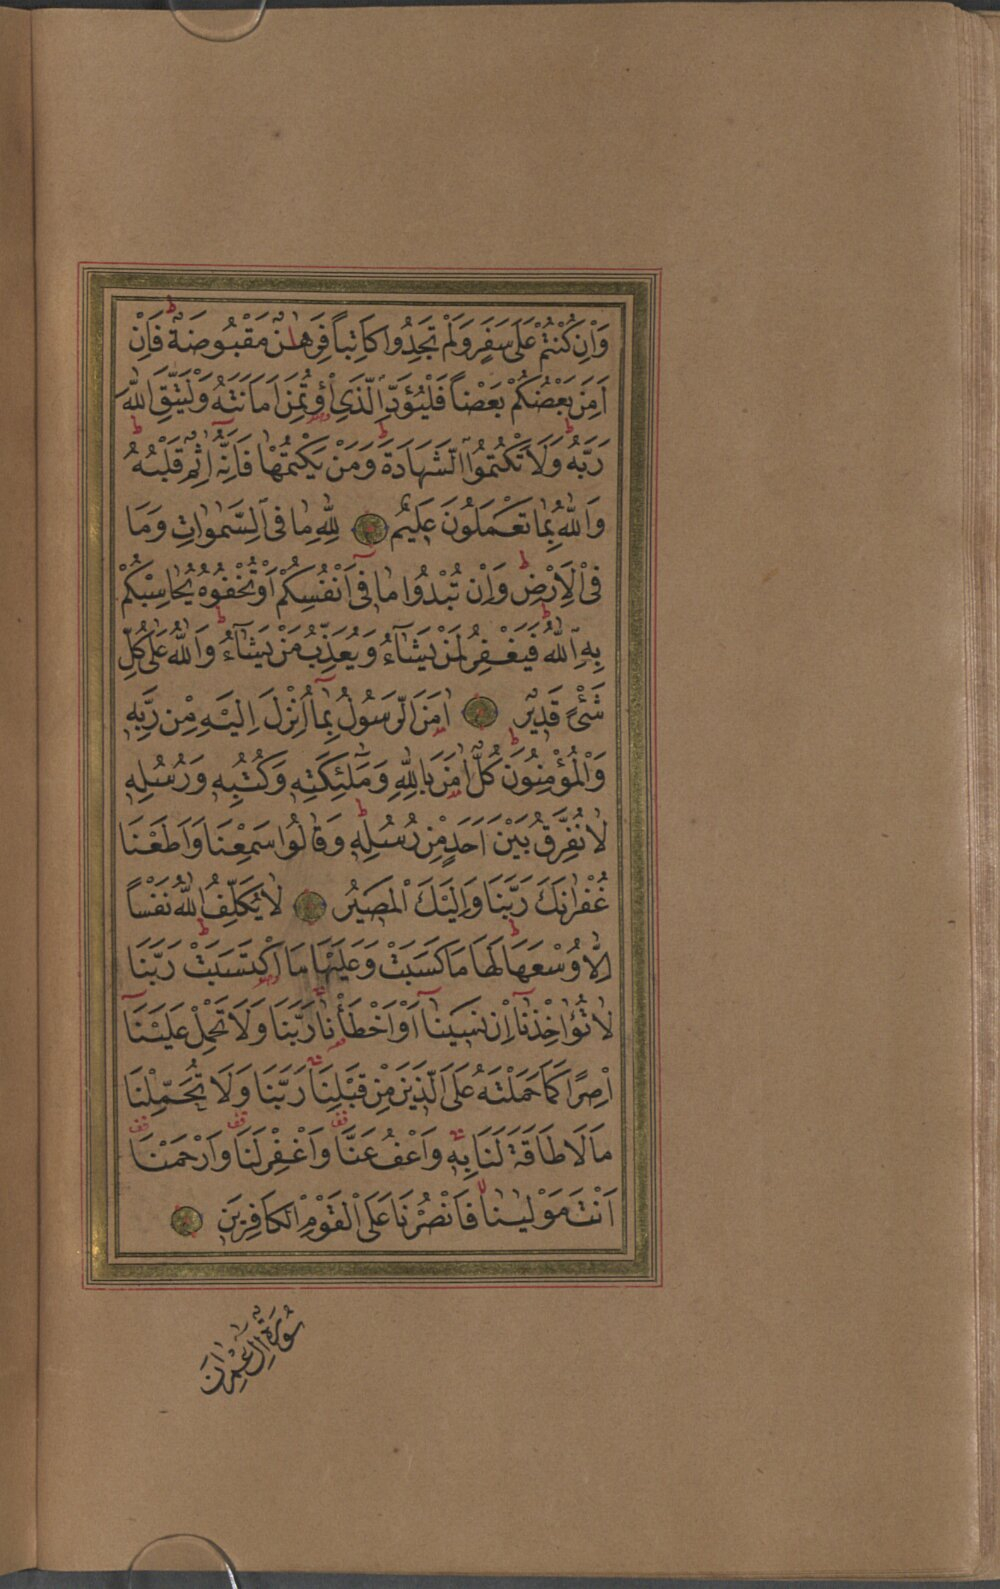 وَاِنْ كُنْتُمْ عَلٰى سَفَرٍ وَلَمْ تَجِدُوا كَاتِباً فَرِهَانٌ مَقْبُوضَةٌ فَاِنْ
اَمِنَ بَعْضُكُمْ بَعْضاً فَلْيُؤَدِّ الَّذِى اؤْتُمِنَ اَمَانَتَهُ وَلْيَتَّقِ اللّٰهَ
رَبَّهُ وَلَا تَكْتُمُوا الشَّهَادَةَ وَمَنْ يَكْتُمْهَا فَاِنَّهُ اٰثِمٌ قَلْبُهُ
وَاللّٰهُ بِمَا تَعْمَلُونَ عَلِيمٌ لِلّٰهِ مَا فِى السَّمٰوَاتِ وَمَا
فِى الْاَرْضِ وَاِنْ تُبْدُوا مَا فِى اَنْفُسِكُمْ اَوْ تُخْفُوهُ يُحَاسِبْكُمْ
بِهِ اللّٰهُ فَيَغْفِرُ لِمَنْ يَشَاءُ وَيُعَذِّبُ مَنْ يَشَاءُ وَاللّٰهُ عَلٰى كُلِّ
شَىْءٍ قَدِيرٌ اٰمَنَ الرَّسُولُ بِمَا اُنْزِلَ اِلَيْهِ مِنْ رَبِّهِ
وَالْمُؤْمِنُونَ كُلٌّ اٰمَنَ بِاللّٰهِ وَمَلٰئِكَتِهِ وَكُتُبِهِ وَرُسُلِهِ
لَا نُفَرِّقُ بَيْنَ اَحَدٍ مِنْ رُسُلِهِ وَقَالُوا سَمِعْنَا وَاَطَعْنَا
غُفْرَانَكَ رَبَّنَا وَاِلَيْكَ الْمَصِيرُ لَا يُكَلِّفُ اللّٰهُ نَفْساً
اِلَّا وُسْعَهَا لَهَا مَا كَسَبَتْ وَعَلَيْهَا مَا اكْتَسَبَتْ رَبَّنَا
لَا تُؤَاخِذْنَا اِنْ نَسِينَا اَوْ اَخْطَأْنَا رَبَّنَا وَلَا تَحْمِلْ عَلَيْنَا
اِصْرًا كَمَا حَمَلْتَهُ عَلَى الَّذِينَ مِنْ قَبْلِنَا رَبَّنَا وَلَا تُحَمِّلْنَا
مَا لَا طَاقَةَ لَنَا بِهِ وَاعْفُ عَنَّا وَاغْفِرْ لَنَا وَارْحَمْنَا
اَنْتَ مَوْلٰينَا فَانْصُرْنَا عَلَى الْقَوْمِ الْكَافِرِينَ
سُورَةُ اٰلِ عِمْرَانَ